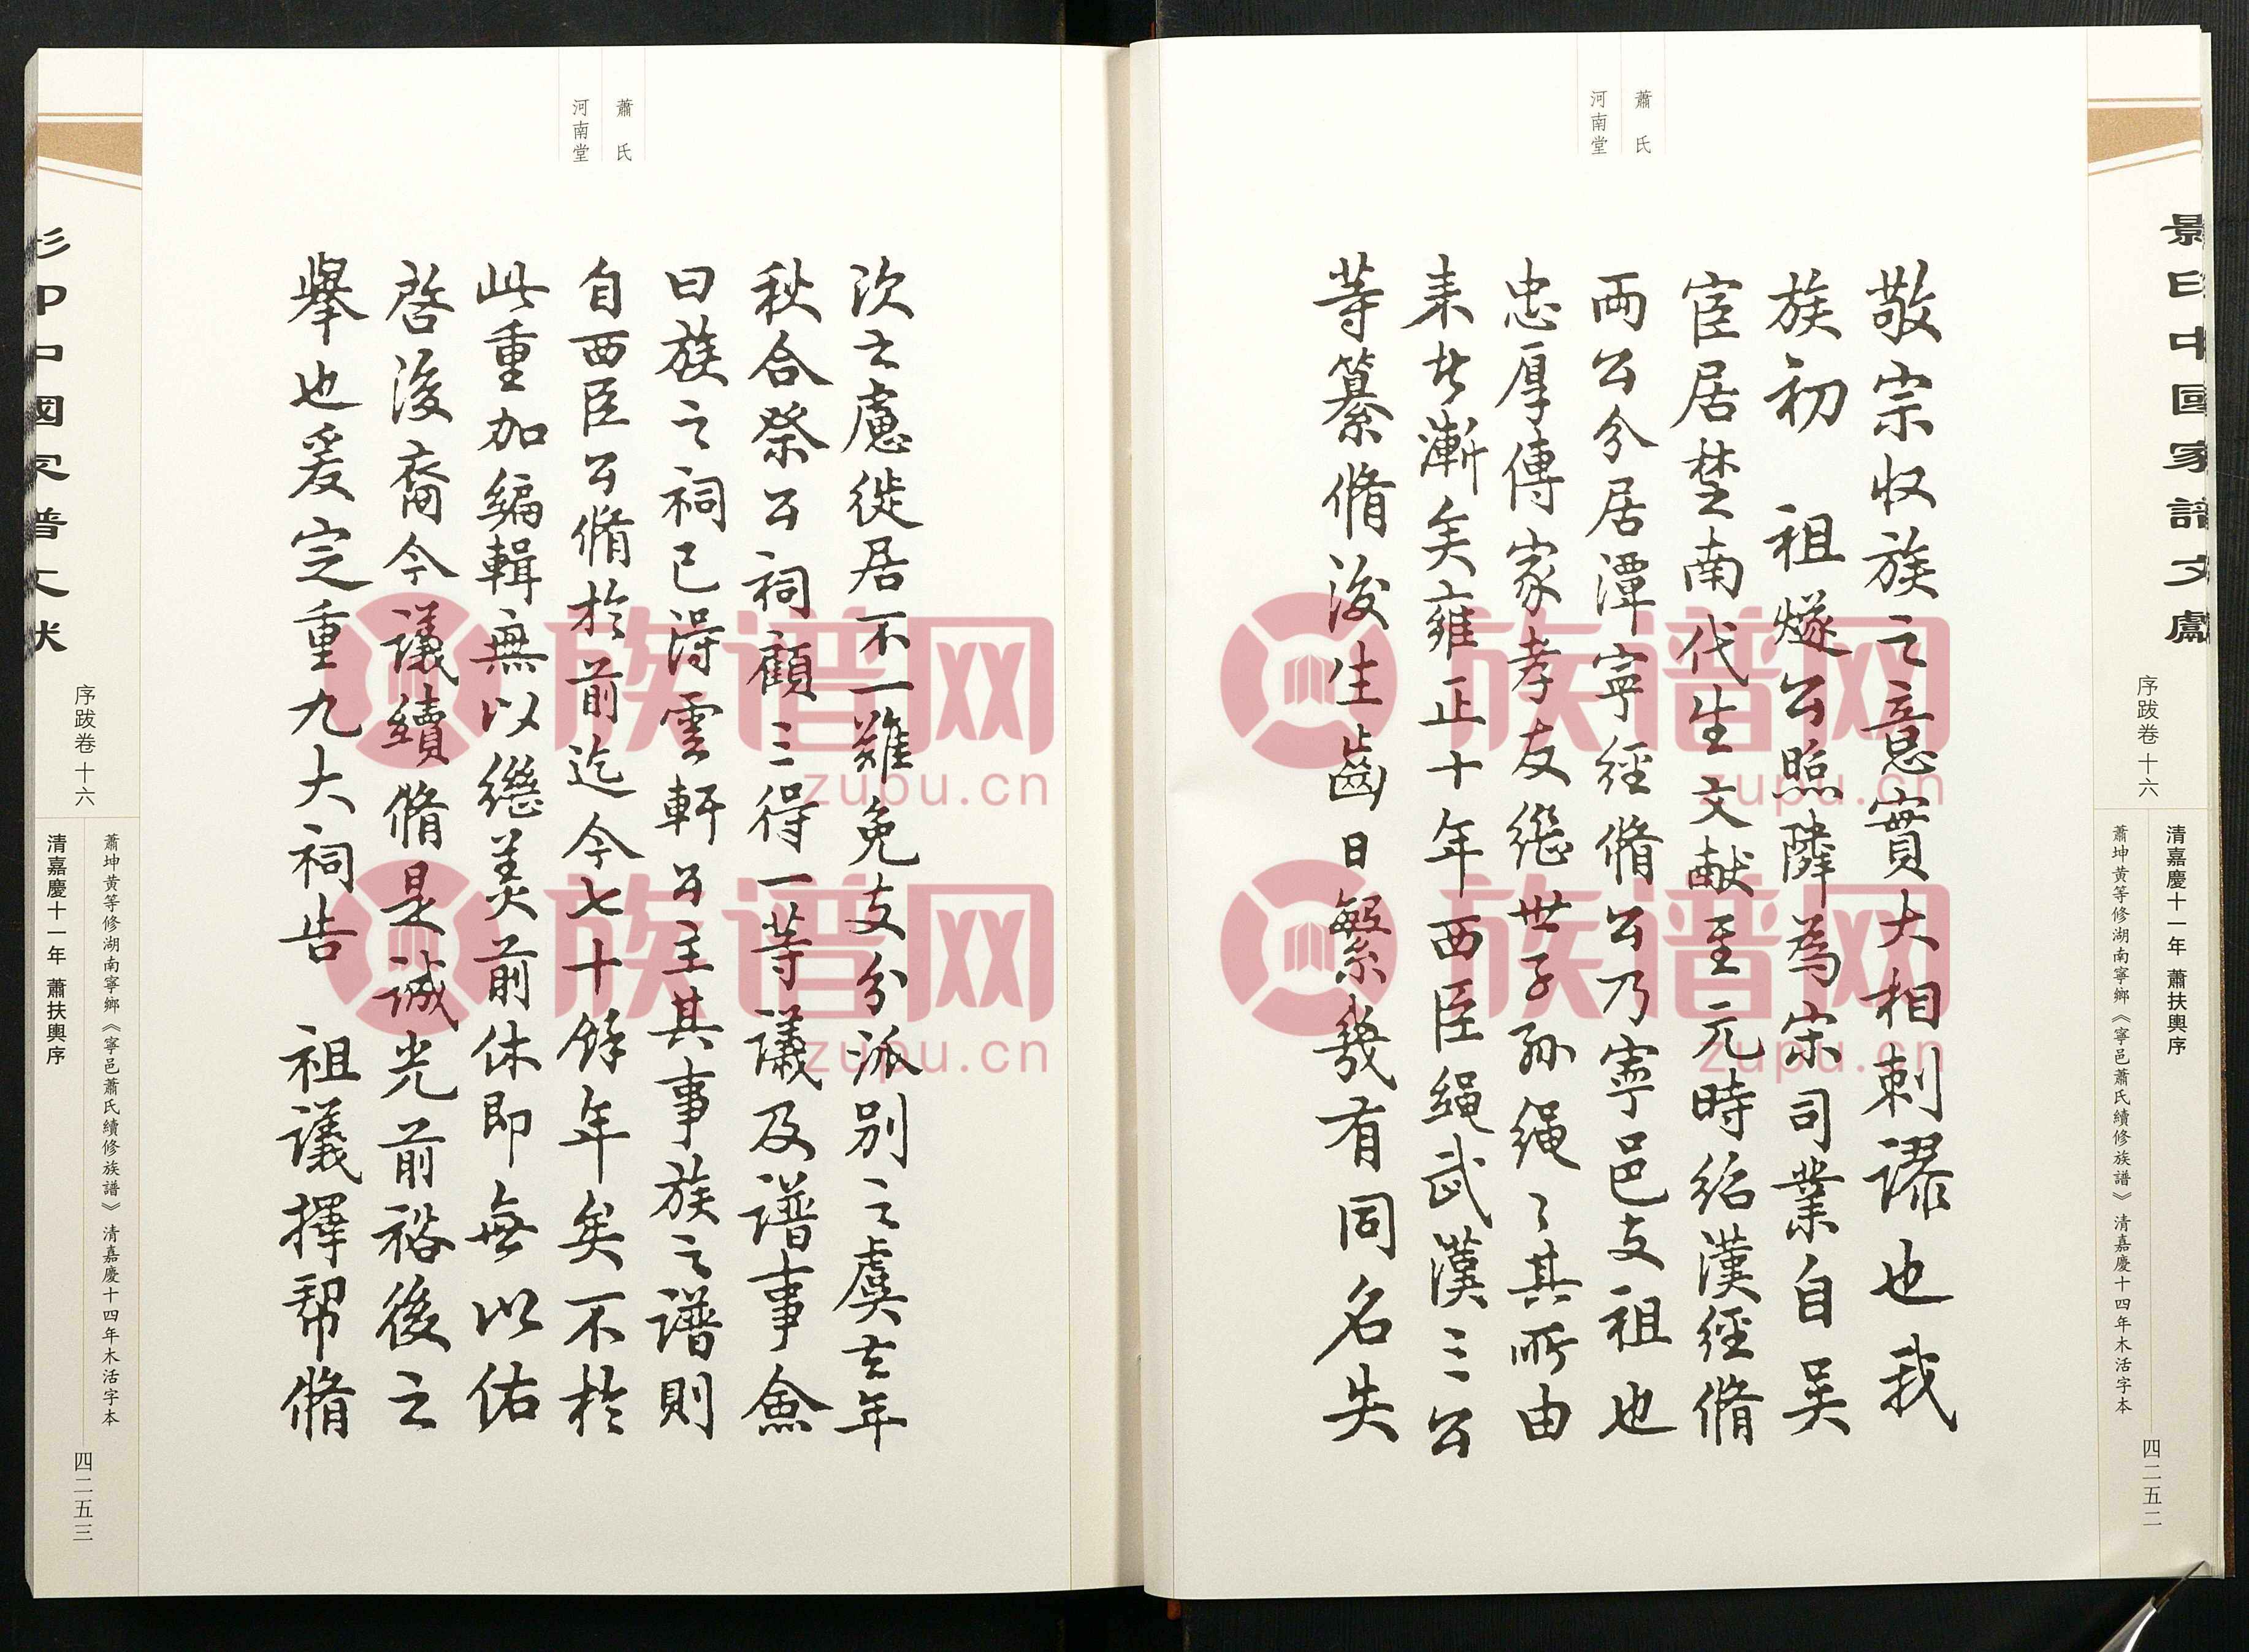 蕭氏
河南堂
敬宗收族之意實大相刺謬也我
族初　祖燧公照隣為宋司業自吴
宦居楚南代生文献至元時绍漢經脩
两公分居潭寧經脩公乃寧邑支祖也
忠厚傳家孝友繼世子孫绳〻其所由
来者漸矣雍正十年西臣绳武漢三公
等纂脩後生齒日繁幾有同名失
景印中國家譜文獻
序跋卷 十六
清嘉慶十一年 蕭扶輿序
蕭坤黄等修湖南寧鄉《寧邑蕭氏續修族譜》 清嘉慶十四年木活字本
四二五二
蕭氏
河南堂
次之慮徙居不一難免支分派别之虞去年
秋合祭公祠顧三得一等議及譜事僉
曰族之祠已得雲軒公主其事族之譜則
自西臣公脩於前迄今七十馀年矣不於
此重加编輯無以繼美前休即無以佑
啓後裔今議續脩是诚光前裕後之
舉也爰定重九大祠告　祖議擇帮脩
影印中國家譜文獻
序跋卷 十六
清嘉慶十一年 蕭扶輿序
蕭坤黄等修湖南寧鄉《寧邑蕭氏續修族譜》 清嘉慶十四年木活字本
四二五三
族谱网
zupu.cn
族谱网
zupu.cn
族谱网
zupu.cn
族谱网
zupu.cn